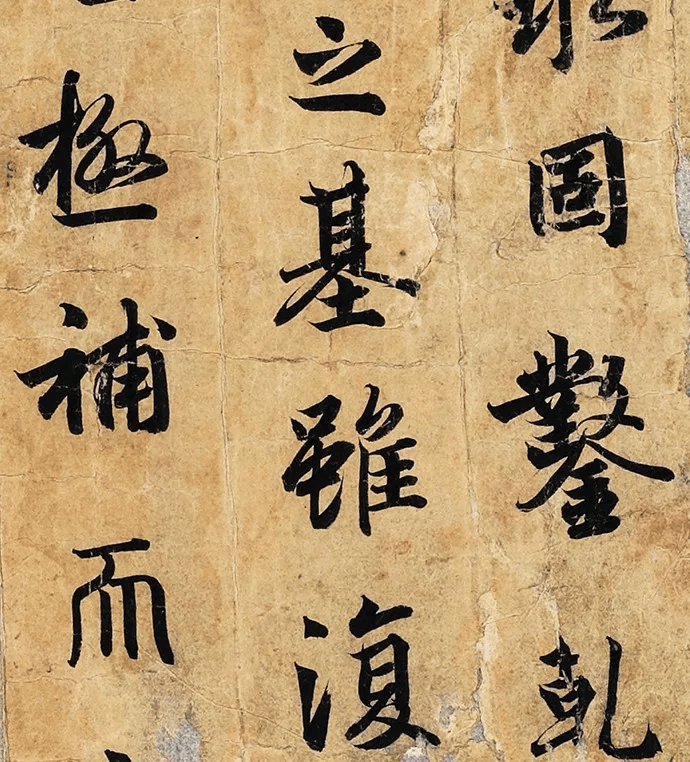 固鑿乾
之基雖復
極補而